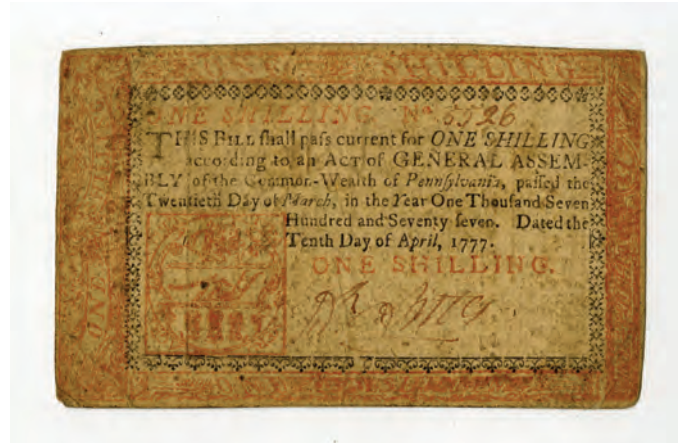 ONE SHILLING
ONE SHILLING No 5526
THIS BILL ſhall paſs current for ONE SHILLING
according to an ACT of GENERAL ASSEM-
BLY of the Common-Wealth of Pennſylvania, paſſed the
Twentieth Day of March, in the Year One Thouſand Seven
Hundred and Seventy ſeven. Dated the
Tenth Day of April, 1777.
ONE SHILLING.